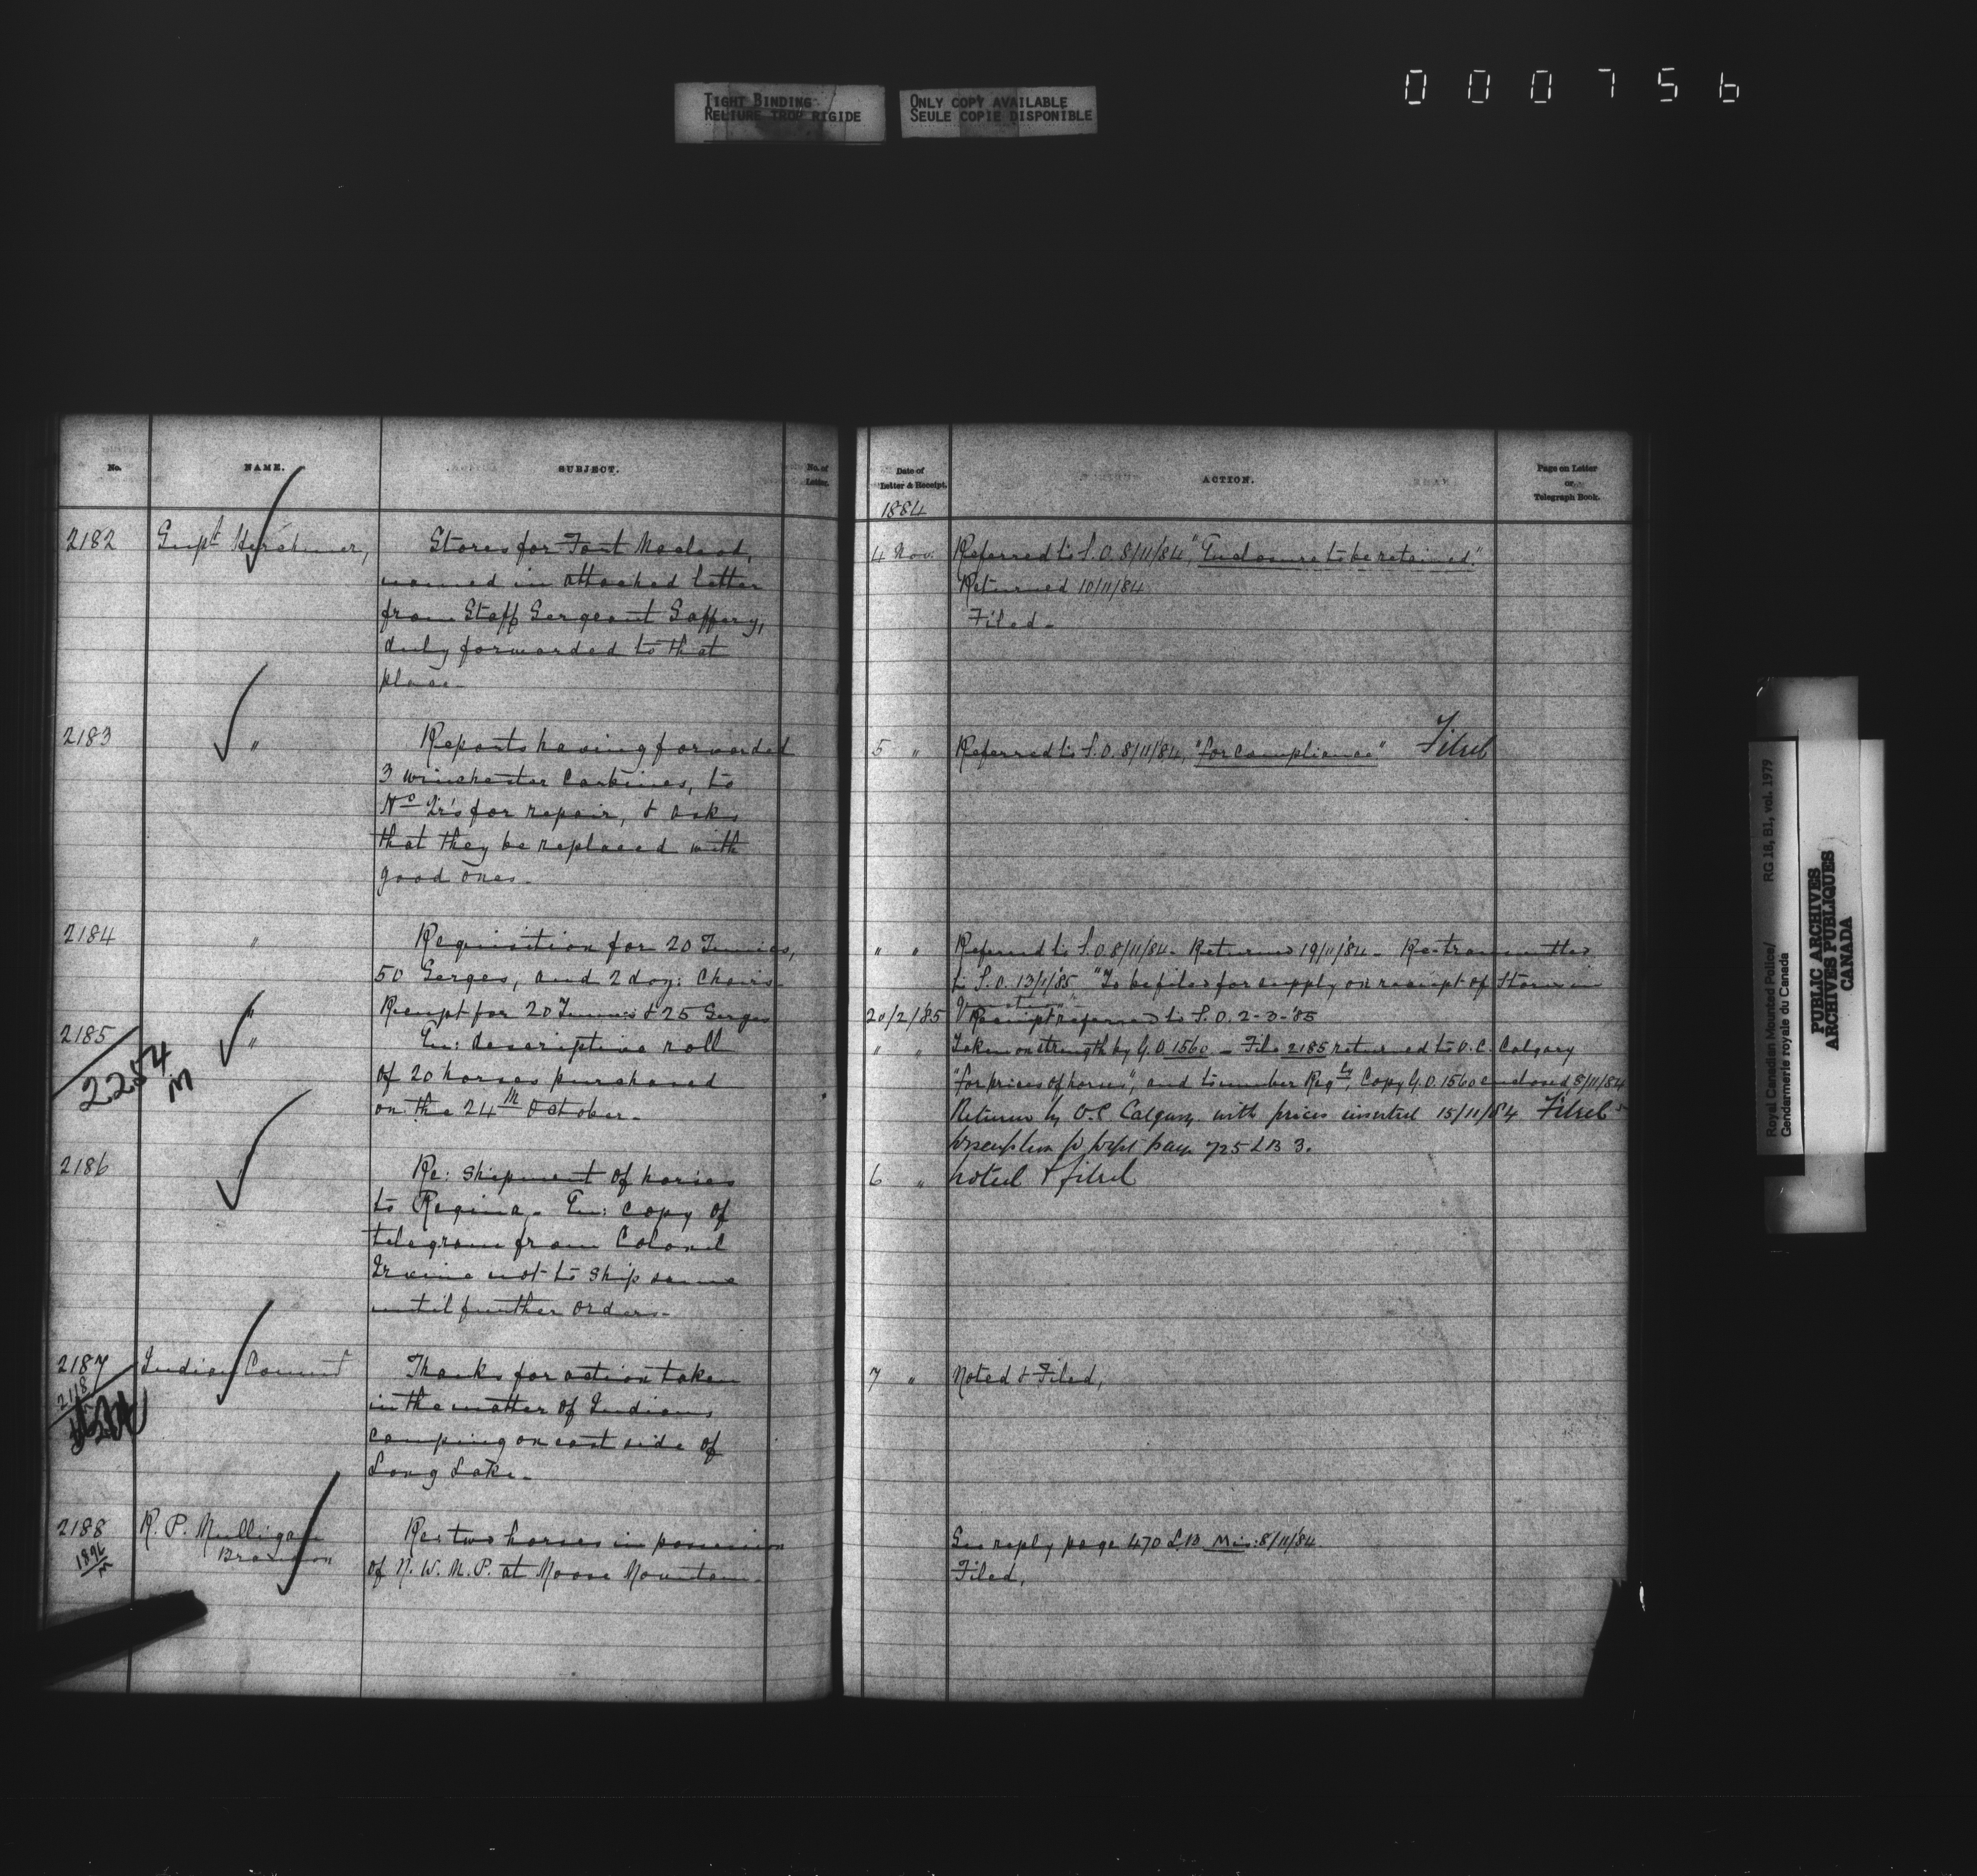 000756
TIGHT BINDING
RELIURE TROP RIGIDE
ONLY COPY AVAILABLE
SEULE COPIE DISPONIBLE
No.
NAME.
SUBJECT.
No. of
Letter.
2182
Supt Herchmer,
Stores for Fort Macleod,
named in attached letter
from Staff Sergeant
duly forwarded to that
place.
2183
"
Reports having forwarded
3 Winchester Carbines, to
Hd Qr's for repair, & asks
that they be replaced with
good ones.
2184
"
Requisition for 20 Tunics,
50 Serges, and 2 doz: Chairs.
"
Receipt for 20 Tunics & 25 Serges
2185
2254
M
"
En: descriptive roll
of 20 horses purchased
on the 24th October.
2186
Re: shipment of horses
to Regina. En: copy of
telegram from Colonel
Irvine not to ship same
until further orders.
2187
Indian Commr
Thanks for action taken
in the matter of Indians
camping on east side of
Long Lake.
2188
1896
M
R. P. Mulligan
Brandon
Re: two horses in possession
of N. W. M. P. at Moose Mountain.
Date of
Letter & Receipt.
ACTION.
Page on Letter
or
Telegraph Book.
1884
4 Nov.
Referred to S.O. 8/11/84, "Enclosure to be retained."
Returned 10/11/84
Filed.
5 "
Referred to S.O. 8/11/84, "for compliance" Filed
" "
Referred to S.O. 8/11/84. Returned 19/11/84. Re-transmitted
to S.O. 13/1/85 "To be filed for supply on receipt of Stores in
question."
20/2/85
Receipt referred to S.O. 2-3-'85
" "
Taken on strength by G.O. 1560. File 2185 returned to O.C. Calgary
"for prices of horses", and to number Regly, Copy G.O. 1560 enclosed 8/11/84
Returned by O.C Calgary with prices inserted 15/11/84 Filed
page 725 LB 3.
6 "
Noted & filed
7 "
Noted & Filed,
See reply page 470 L.B. Mis: 8/11/84
Filed,
Royal Canadian Mounted Police/
Gendarmerie royale du Canada
RG 18, B1, vol. 1979
PUBLIC ARCHIVES
ARCHIVES PUBLIQUES
CANADA